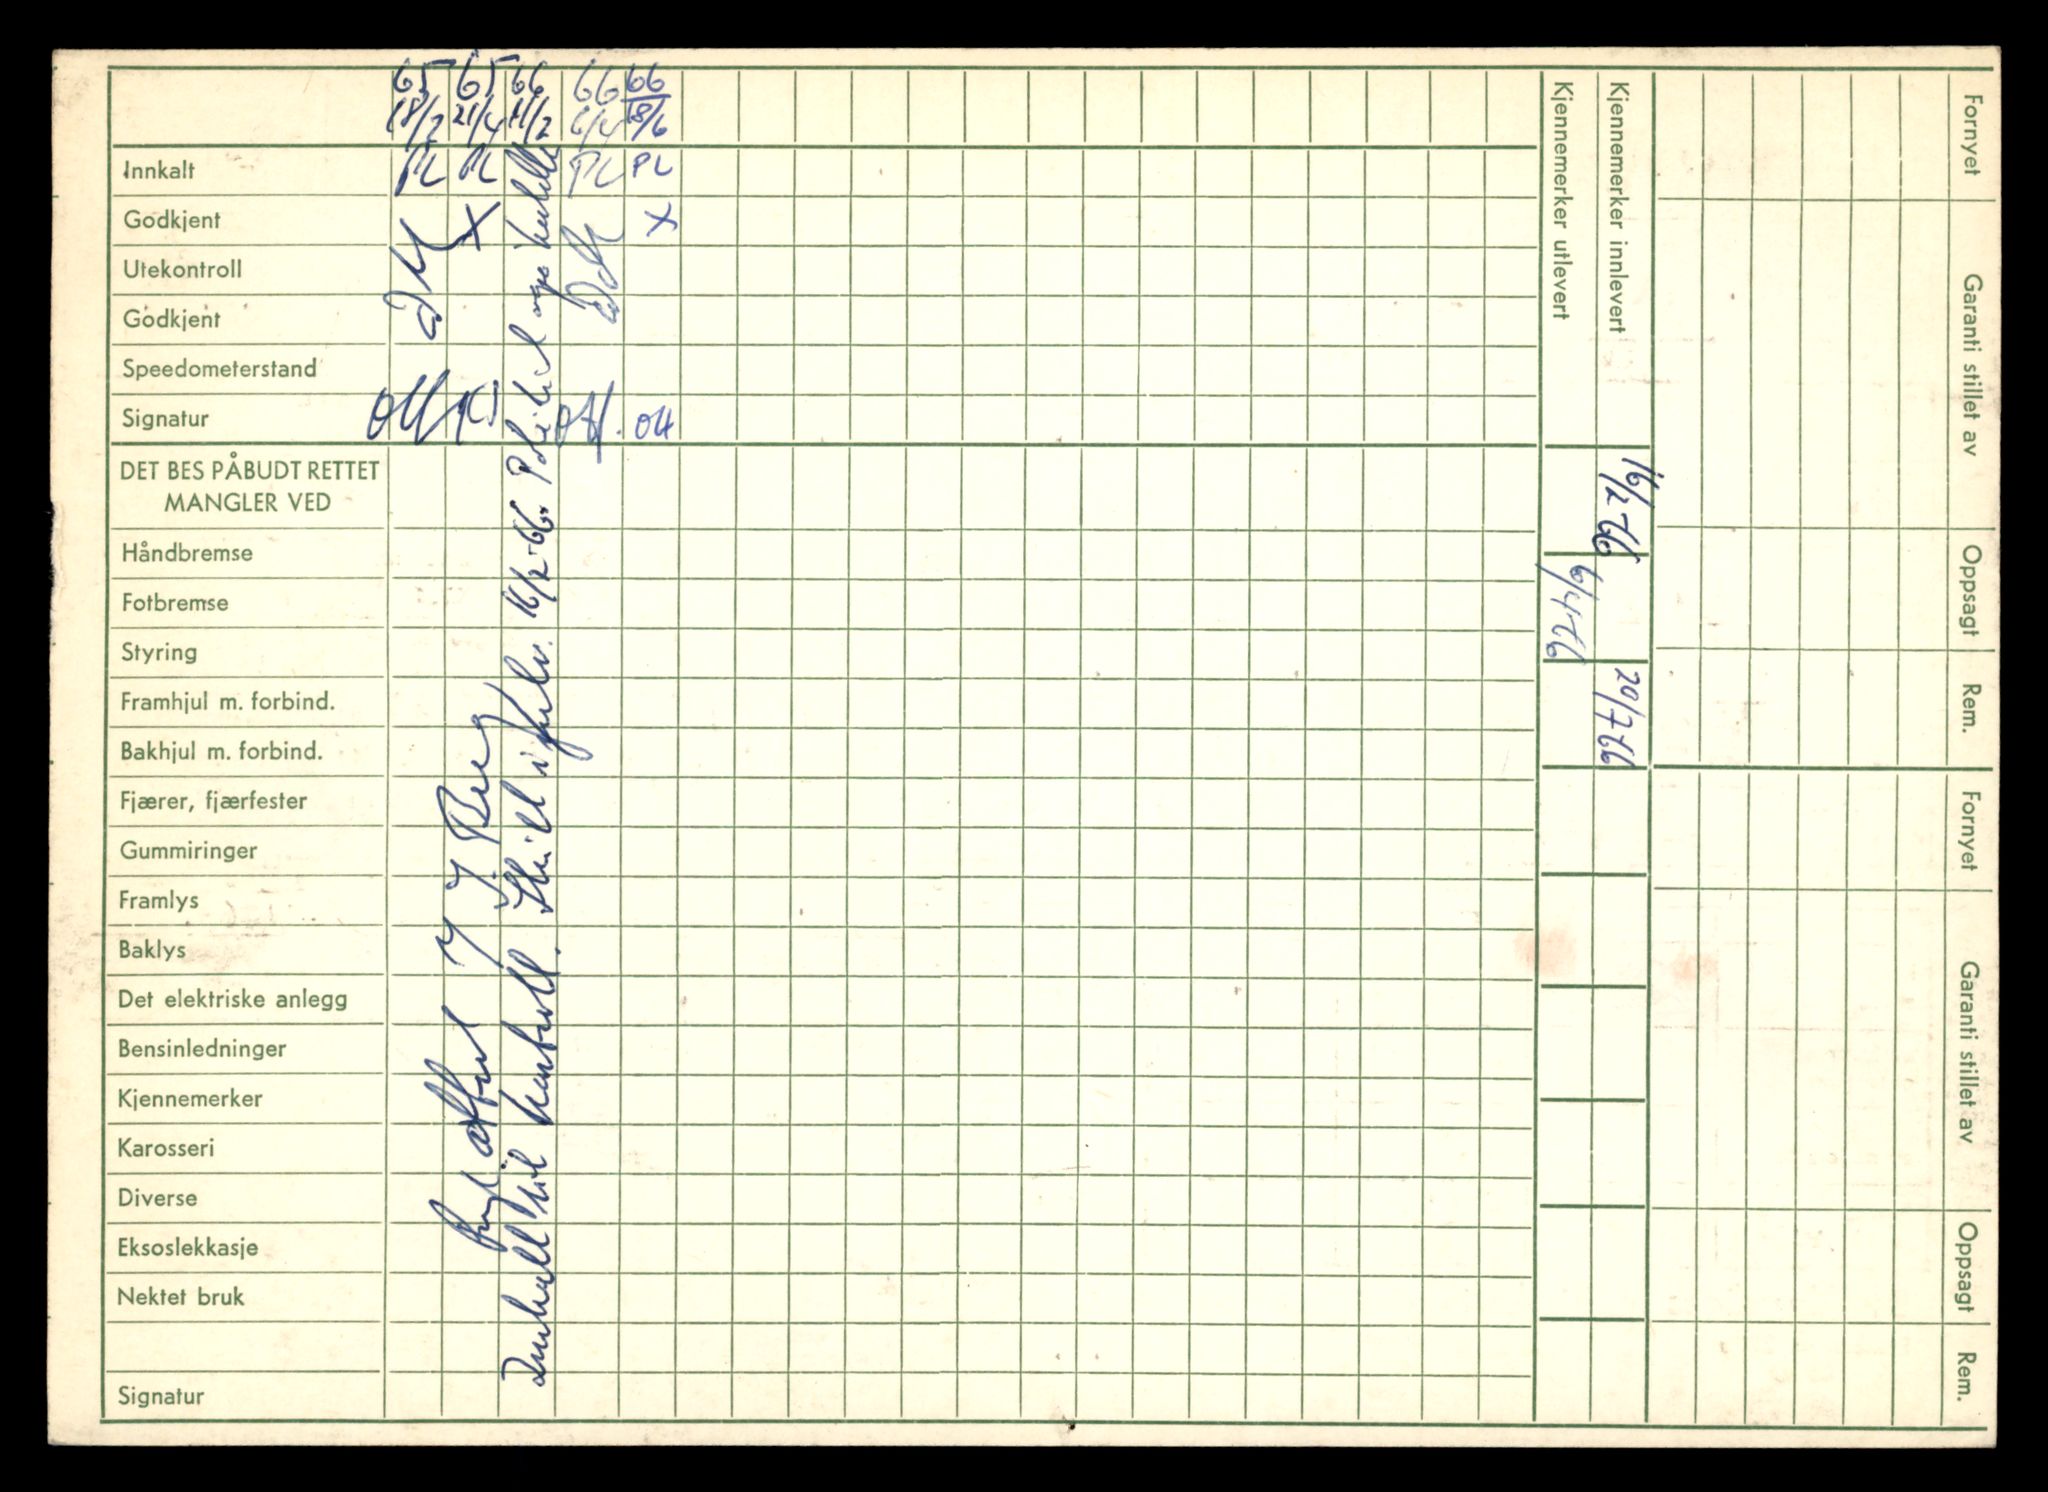 65 65 66 66 66
18/2 21/4 11/2 6/4 18/6
Innkalt PL PL PL PL
Godkjent X X
Utekontroll
Godkjent
Speedometerstand
Signatur OH
DET BES PÅBUDT RETTET
MANGLER VED
Håndbremse
Fotbremse
Styring
Framhjul m. forbind.
Bakhjul m. forbind.
Fjærer, fjærfester
Gummiringer
Framlys
Baklys
Det elektriske anlegg
Bensinledninger
Kjennemerker
Karosseri
Diverse
Eksoslekkasje
Nektet bruk
Signatur
Innkalt til kontroll. Skilt 16/2-66.
Kjennemerker utlevert
6/4-66
Kjennemerker innlevert
16/2-66
20/7-66
Fornyet
Garanti stillet av
Oppsagt
Rem.
Fornyet
Garanti stillet av
Oppsagt
Rem.